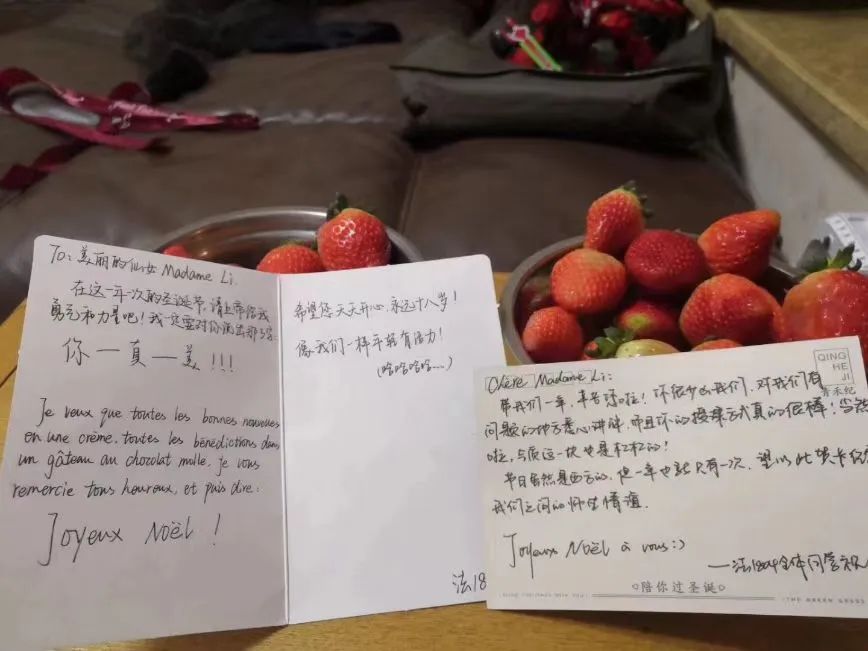 To: 美丽的仙女 Madame Li.
在这一年一次的圣诞节,请上帝给我
勇气和力量吧!我一定要对你说出那三字:
你一真一美!!!
Je veux que toutes les bonnes nouveues
en une crème. toutes les bénédictions dans
un gâteau au chocolat molle. je vous
remercie tous heureux, et puis dire:
Joyeux Noël !
希望您天天开心,永远十八岁!
像我们一样年轻有活力!
(哈哈哈哈……)
法18
Chère Madame Li:
带我们一年,辛苦啦!你很少凶我们,对我们有
问题的地方悉心讲解,而且你的授课方式真的很棒!当然
啦,与质这一块也是杠杠的!
节日虽然是西方的,但一年也就只有一次,望以此贺卡
我们之间的师生情谊.
Joyeux Noël à vous:)
——法1804全体同学祝
QING
HE
JI
青禾纪
陪你过圣诞